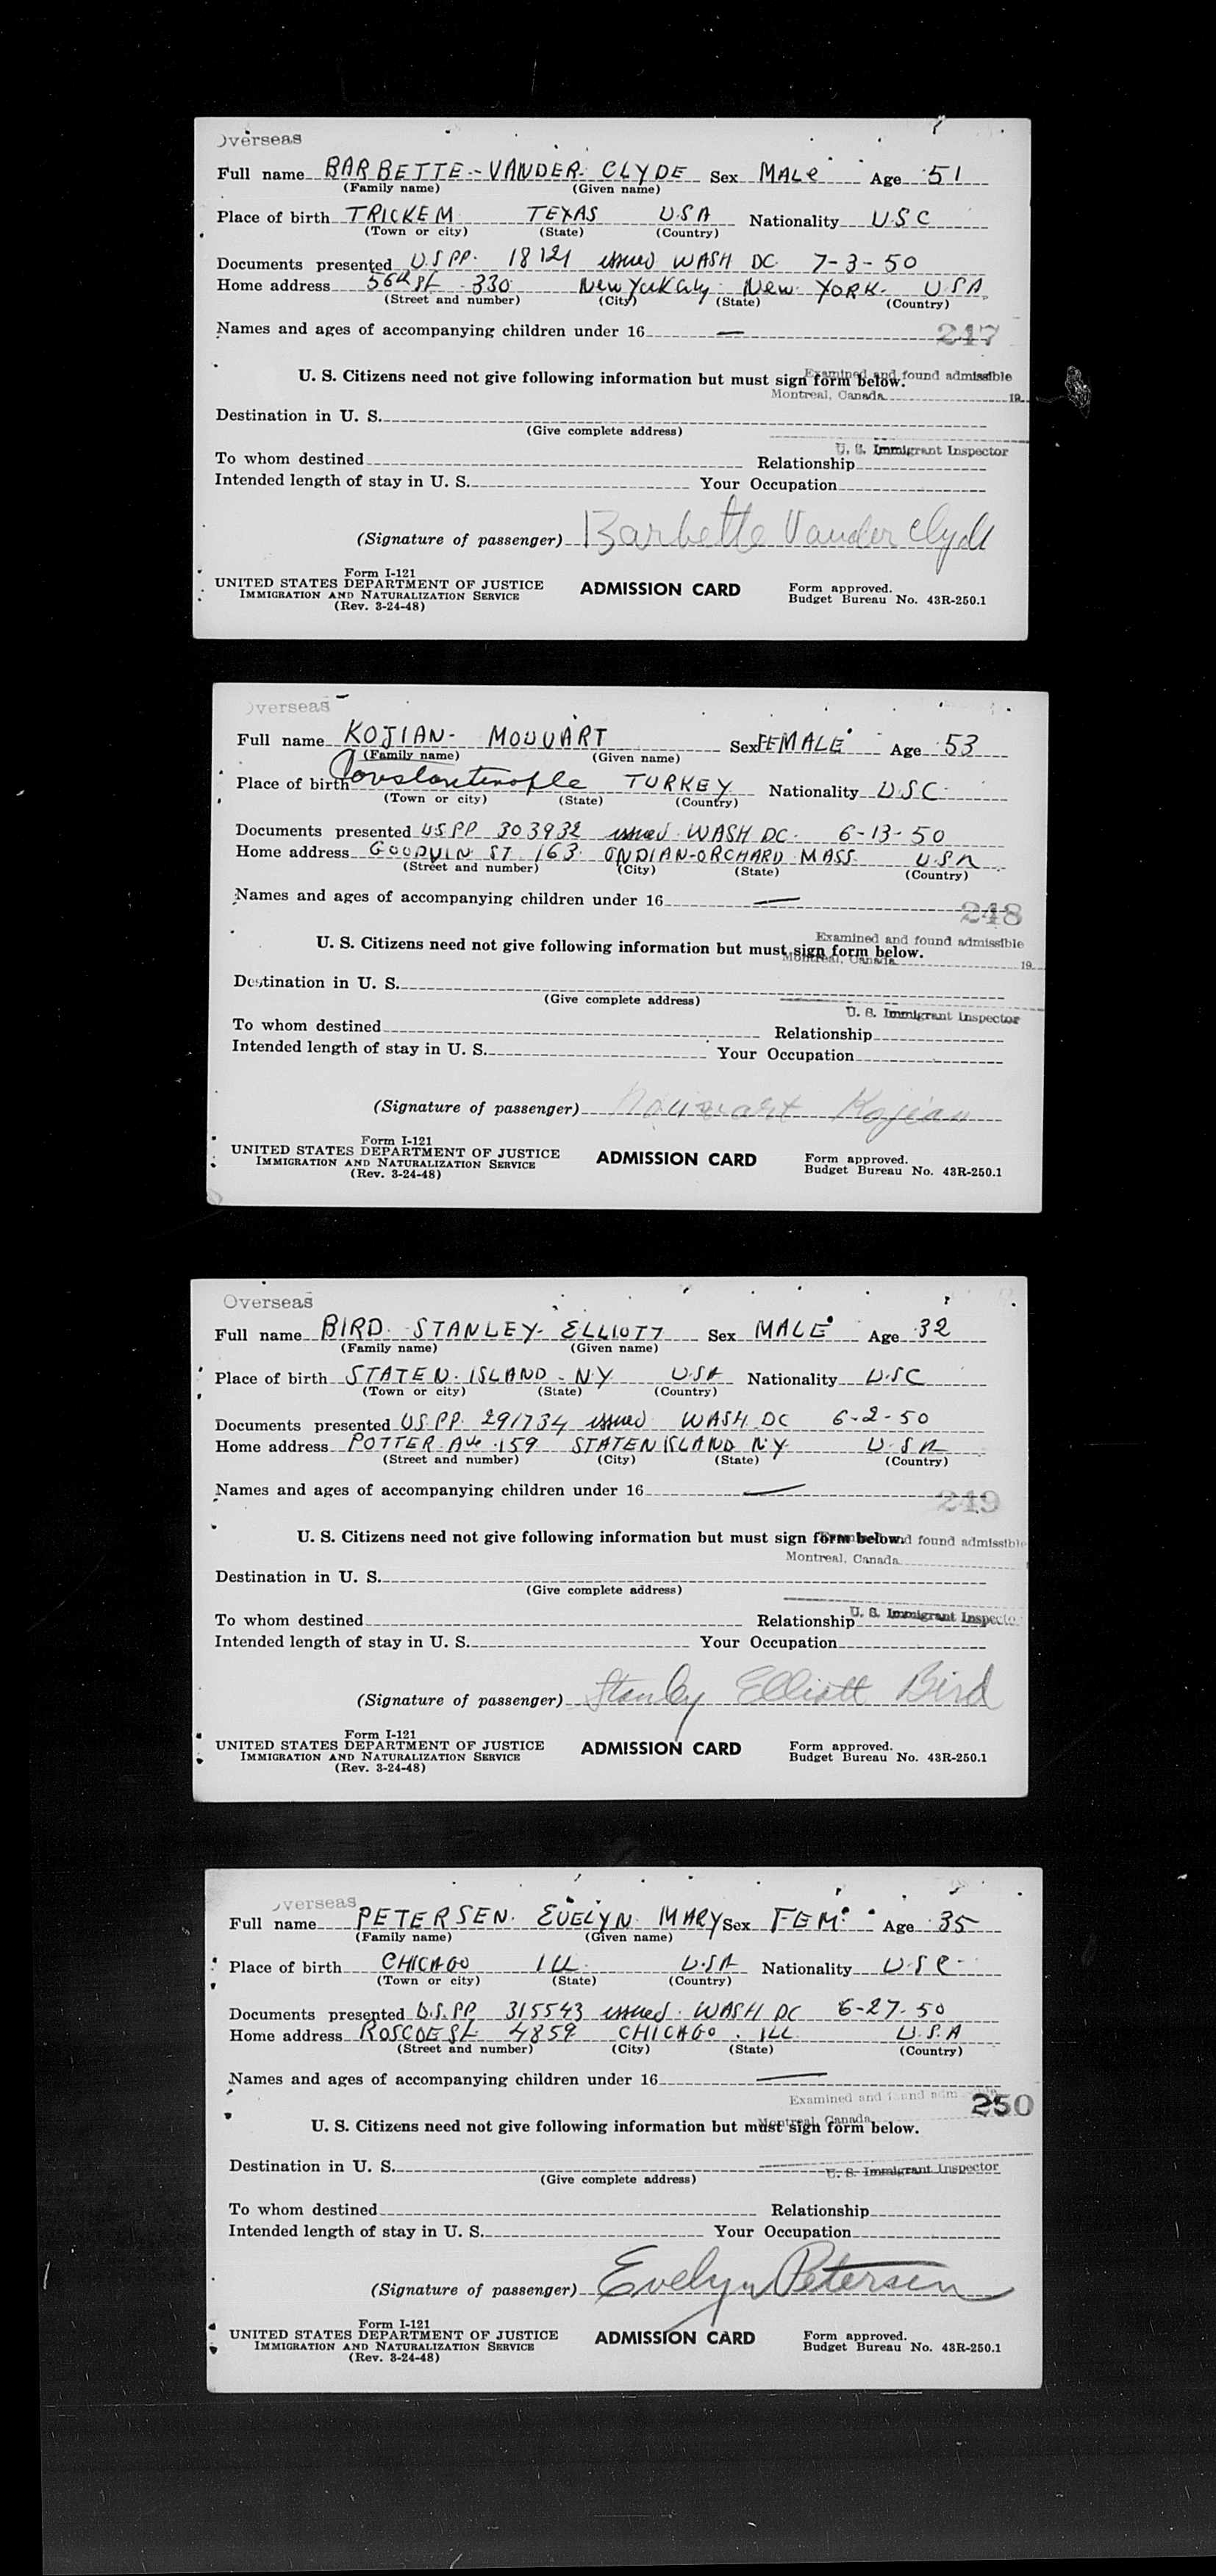 Overseas
Full name BARBETTE - VANDER CLYDE Sex MALE Age 51
(Family name) (Given name)
Place of birth TRICKEM TEXAS USA Nationality U.S.C
(Town or city) (State) (Country)
Documents presented U.S PP. 18121 issued WASH DC. 7-3-50
Home address 56th St. 330 New York City New YORK. U S A.
(Street and number) (City) (State) (Country)
Names and ages of accompanying children under 16 —
247
Examined and found admissible
U. S. Citizens need not give following information but must sign form below.
Montreal, Canada 19
Destination in U. S.
(Give complete address)
U. S. Immigrant Inspector
To whom destined Relationship
Intended length of stay in U. S. Your Occupation
(Signature of passenger) Barbette Vander Clyde
Form I-121
UNITED STATES DEPARTMENT OF JUSTICE ADMISSION CARD Form approved.
IMMIGRATION AND NATURALIZATION SERVICE Budget Bureau No. 43R-250.1
(Rev. 3-24-48)
verseas
Full name KOJIAN- MOUVART Sex FEMALE Age 53
(Family name) (Given name)
Place of birth Constantinople TURKEY Nationality U.S.C.
(Town or city) (State) (Country)
Documents presented US PP 303932 issued WASH DC. 6-13-50
Home address GOODVIN ST 163 INDIAN-ORCHARD MASS. U S A
(Street and number) (City) (State) (Country)
Names and ages of accompanying children under 16 —
248
Examined and found admissible
U. S. Citizens need not give following information but must sign form below.
Montreal, Canada 19
Destination in U. S.
(Give complete address)
U. S. Immigrant Inspector
To whom destined Relationship
Intended length of stay in U. S. Your Occupation
(Signature of passenger) Kojian
Form I-121
UNITED STATES DEPARTMENT OF JUSTICE ADMISSION CARD Form approved.
IMMIGRATION AND NATURALIZATION SERVICE Budget Bureau No. 43R-250.1
(Rev. 3-24-48)
Overseas
Full name BIRD STANLEY- ELLIOTT Sex MALE Age 32
(Family name) (Given name)
Place of birth STATEN. ISLAND - N.Y U.S.A Nationality U.S.C
(Town or city) (State) (Country)
Documents presented U.S. PP. 291734 issued WASH. DC 6-2-50
Home address POTTER Ave 159 STATEN ISLAND N.Y. U.S.A
(Street and number) (City) (State) (Country)
Names and ages of accompanying children under 16 —
249
U. S. Citizens need not give following information but must sign form below. found admissible
Montreal, Canada
Destination in U. S.
(Give complete address)
U. S. Immigrant Inspector
To whom destined Relationship
Intended length of stay in U. S. Your Occupation
(Signature of passenger) Stanley Elliott Bird
Form I-121
UNITED STATES DEPARTMENT OF JUSTICE ADMISSION CARD Form approved.
IMMIGRATION AND NATURALIZATION SERVICE Budget Bureau No. 43R-250.1
(Rev. 3-24-48)
verseas
Full name PETERSEN. EVELYN MARY Sex FEM. Age 35
(Family name) (Given name)
Place of birth CHICAGO ILL U.S.A Nationality U S C
(Town or city) (State) (Country)
Documents presented U.S. PP 315543 issued WASH DC 6-27-50
Home address ROSCOE St 4859 CHICAGO. ILL. U.S.A
(Street and number) (City) (State) (Country)
Names and ages of accompanying children under 16 —
Examined and found adm 250
U. S. Citizens need not give following information but must sign form below.
Montreal, Canada
Destination in U. S.
(Give complete address)
U. S. Immigrant Inspector
To whom destined Relationship
Intended length of stay in U. S. Your Occupation
(Signature of passenger) Evelyn Petersen
Form I-121
UNITED STATES DEPARTMENT OF JUSTICE ADMISSION CARD Form approved.
IMMIGRATION AND NATURALIZATION SERVICE Budget Bureau No. 43R-250.1
(Rev. 3-24-48)